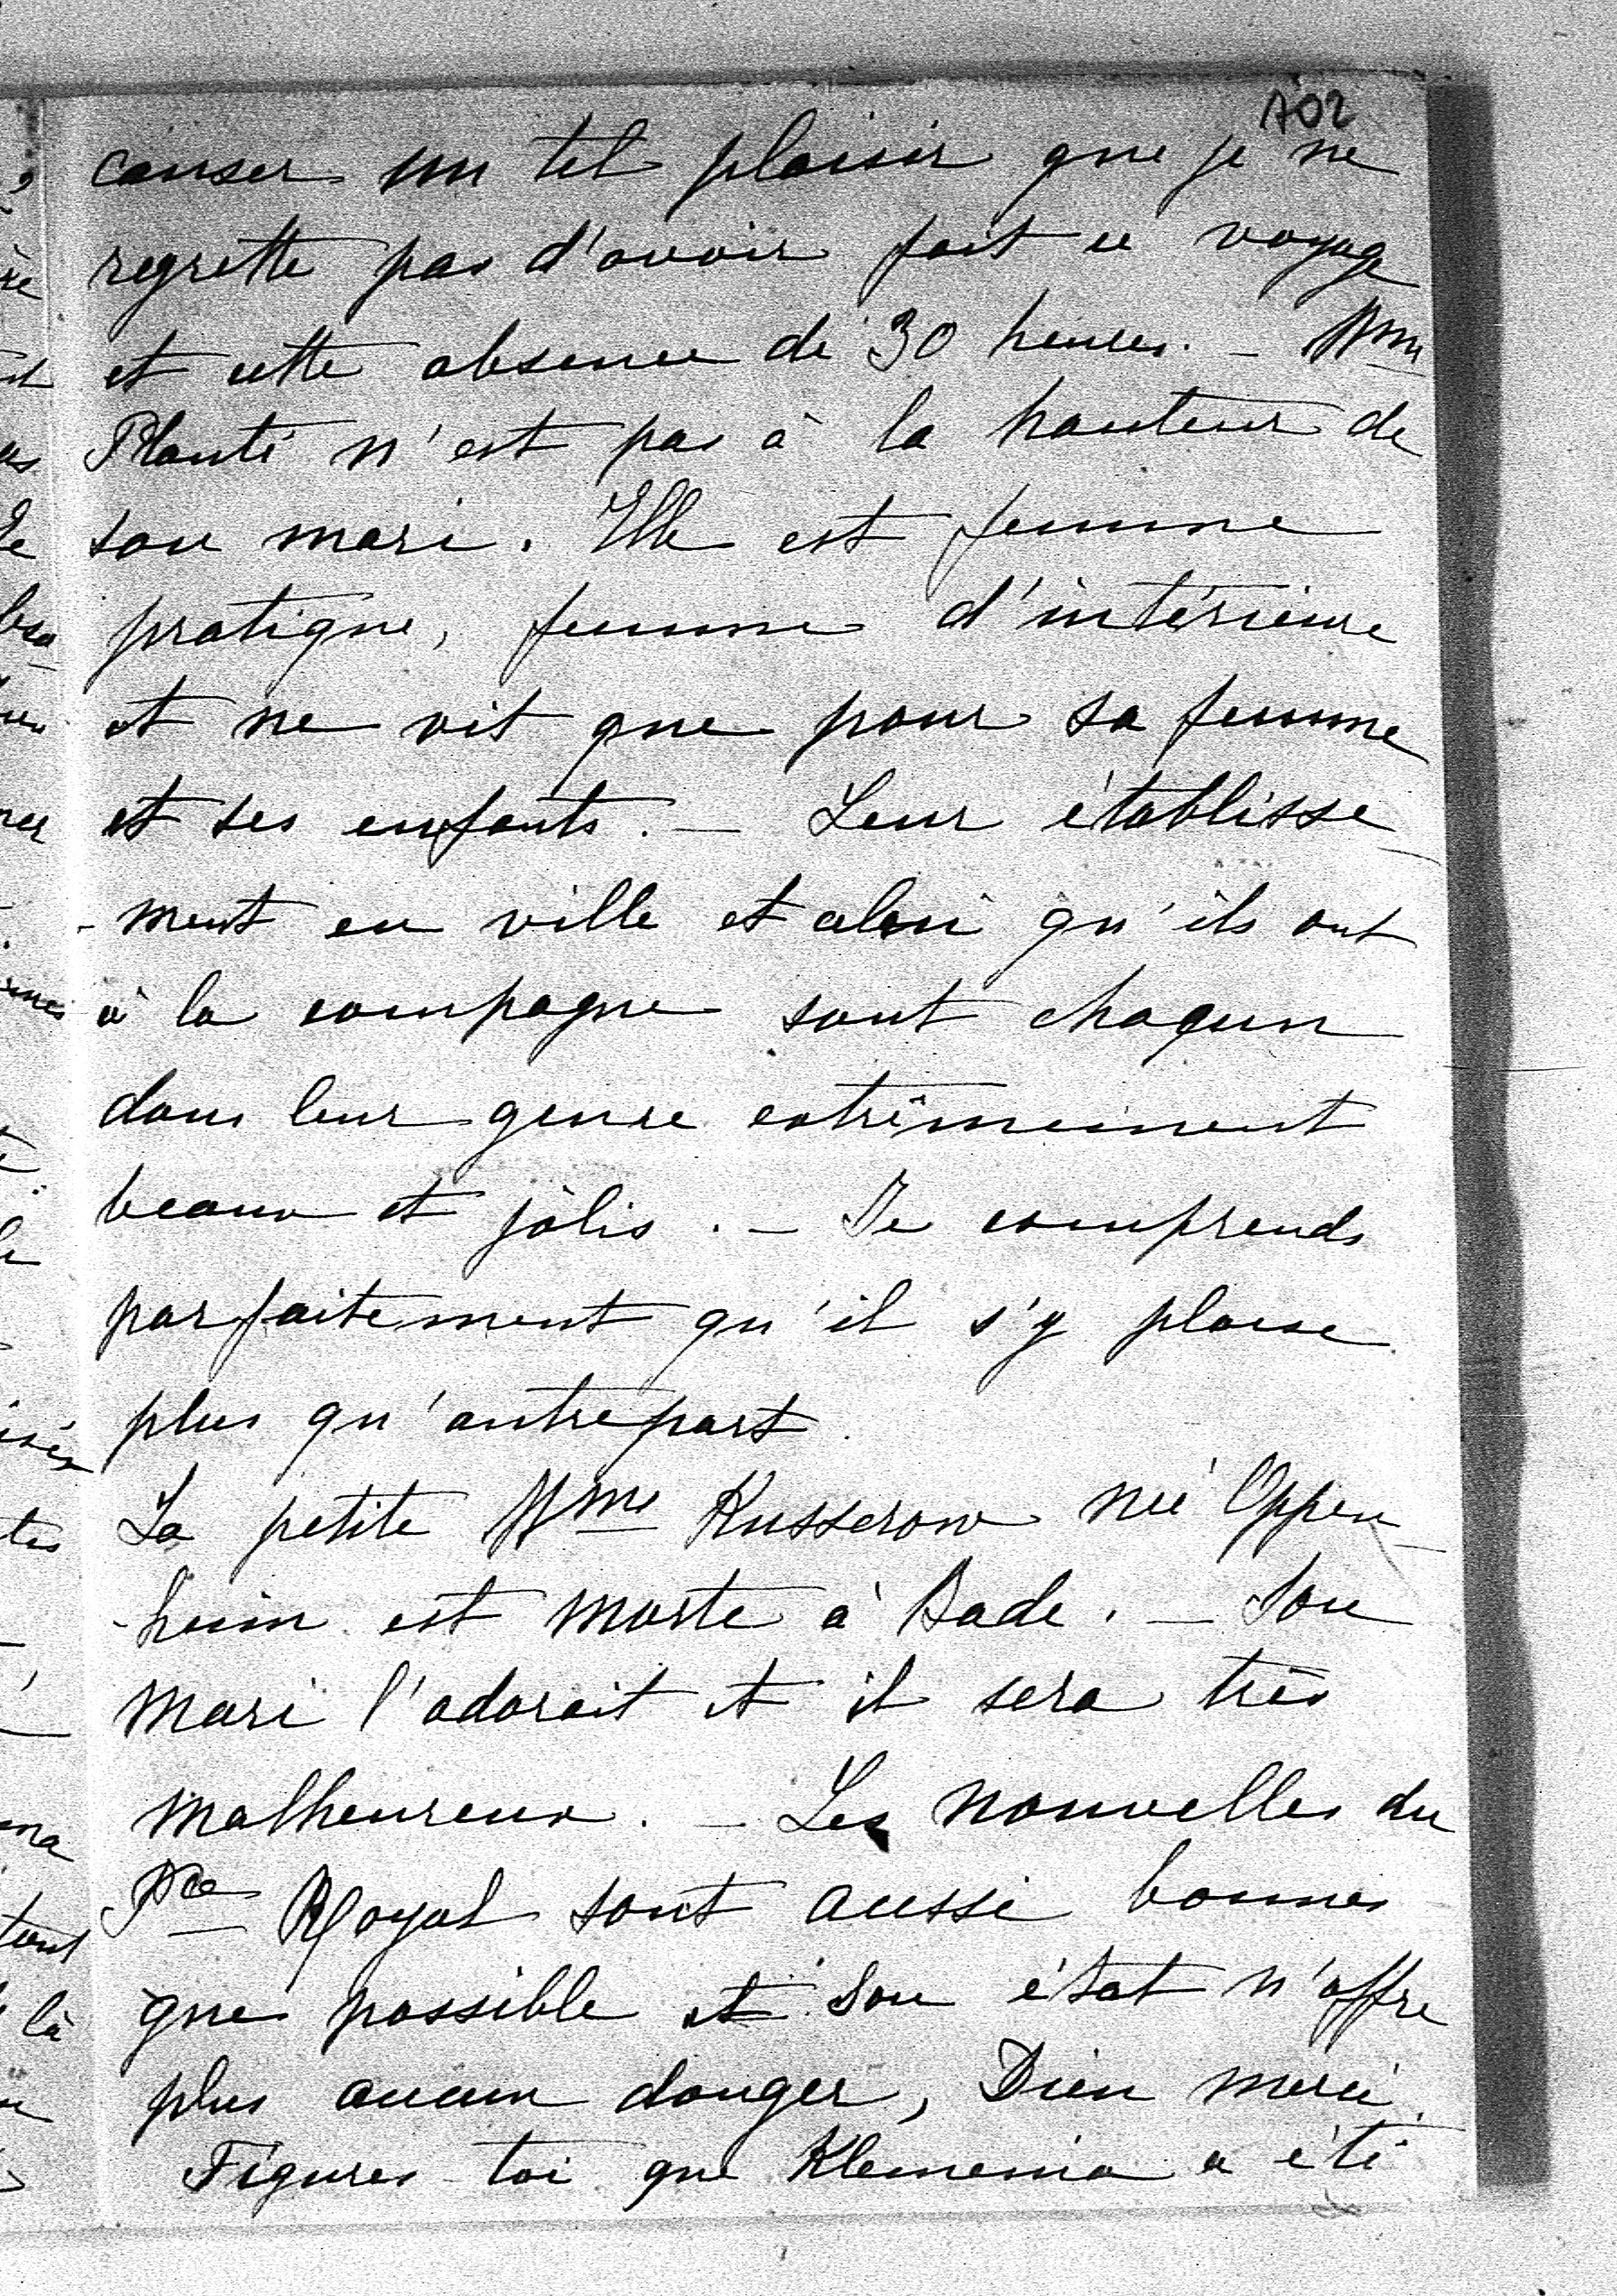 102
causer un tel plaisir que je ne
regrette pas d'avoir fait ce voyage
et cette absence de 30 heures. — Mme
Planté n'est pas à la hauteur de
son mari. Elle est femme
pratique, femme d'intérieure
et ne vit que pour sa femme
et ses enfants. — Leur établisse-
-ment en ville et celui qu'ils ont
à la campagne sont chaqun
dans leur genre extrêmement
beaux et jolis. — Je comprends
parfaitement qu'il s'y plaise
plus qu'autrepart.
La petite Mme Kusserow née Oppen-
-heim est morte à Bade. — Son
mari l'adorait et il sera très
malheureux. — Les nouvelles du
Pce Royal sont aussi bonnes
que possible et son état n'offre
plus aucun danger, Dieu merci.
Figures-toi que a été